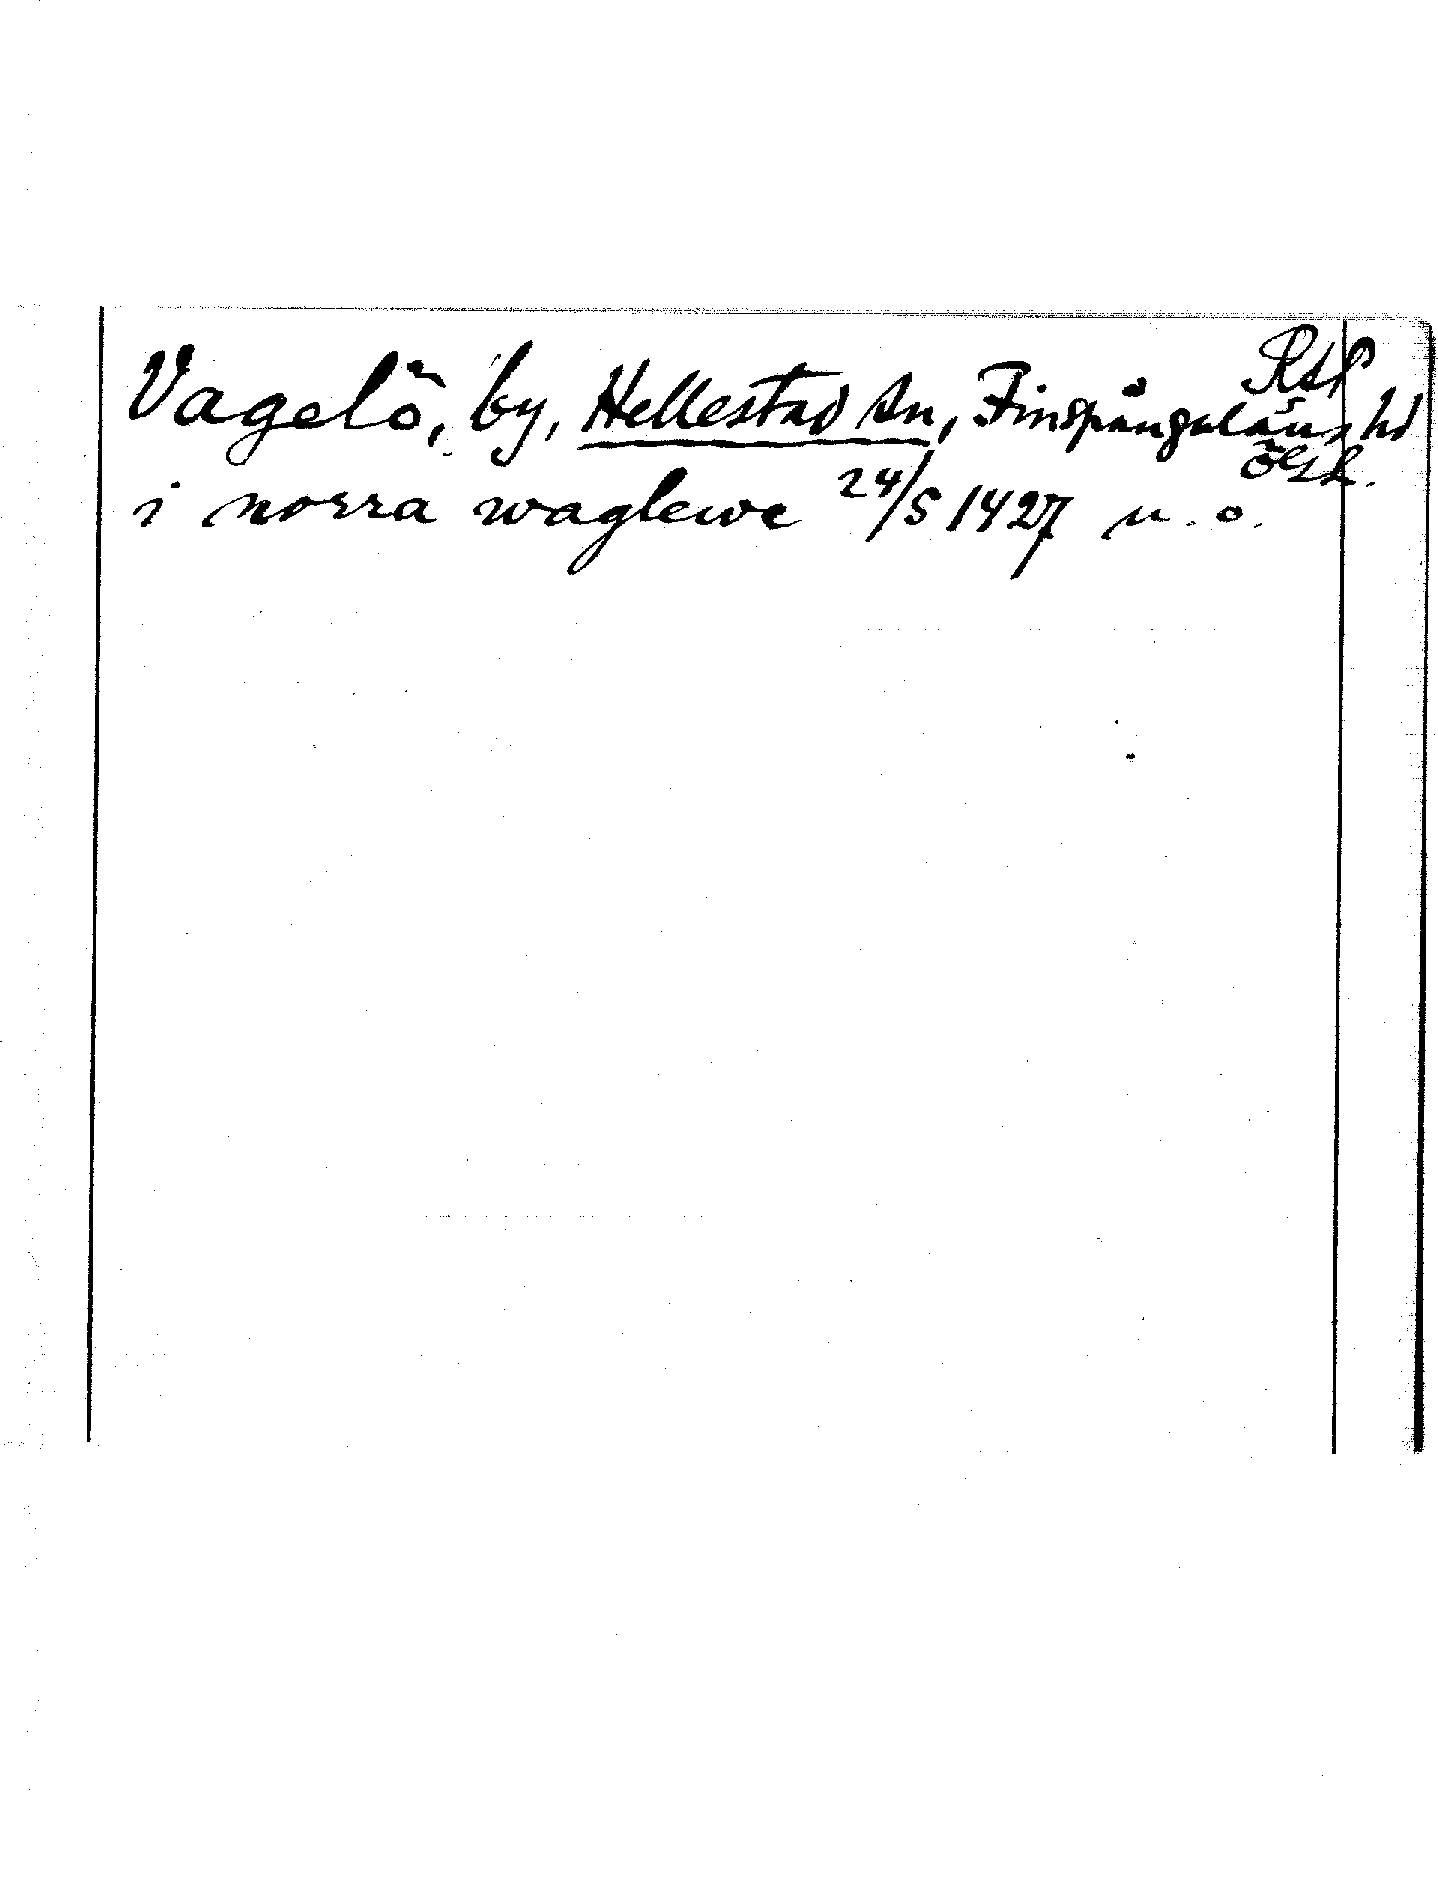 RAP
Vagelö, by, Hellestad sn, Finspångaläns hd
ögh.
i norra waglewe 24/5 1427 n. o.